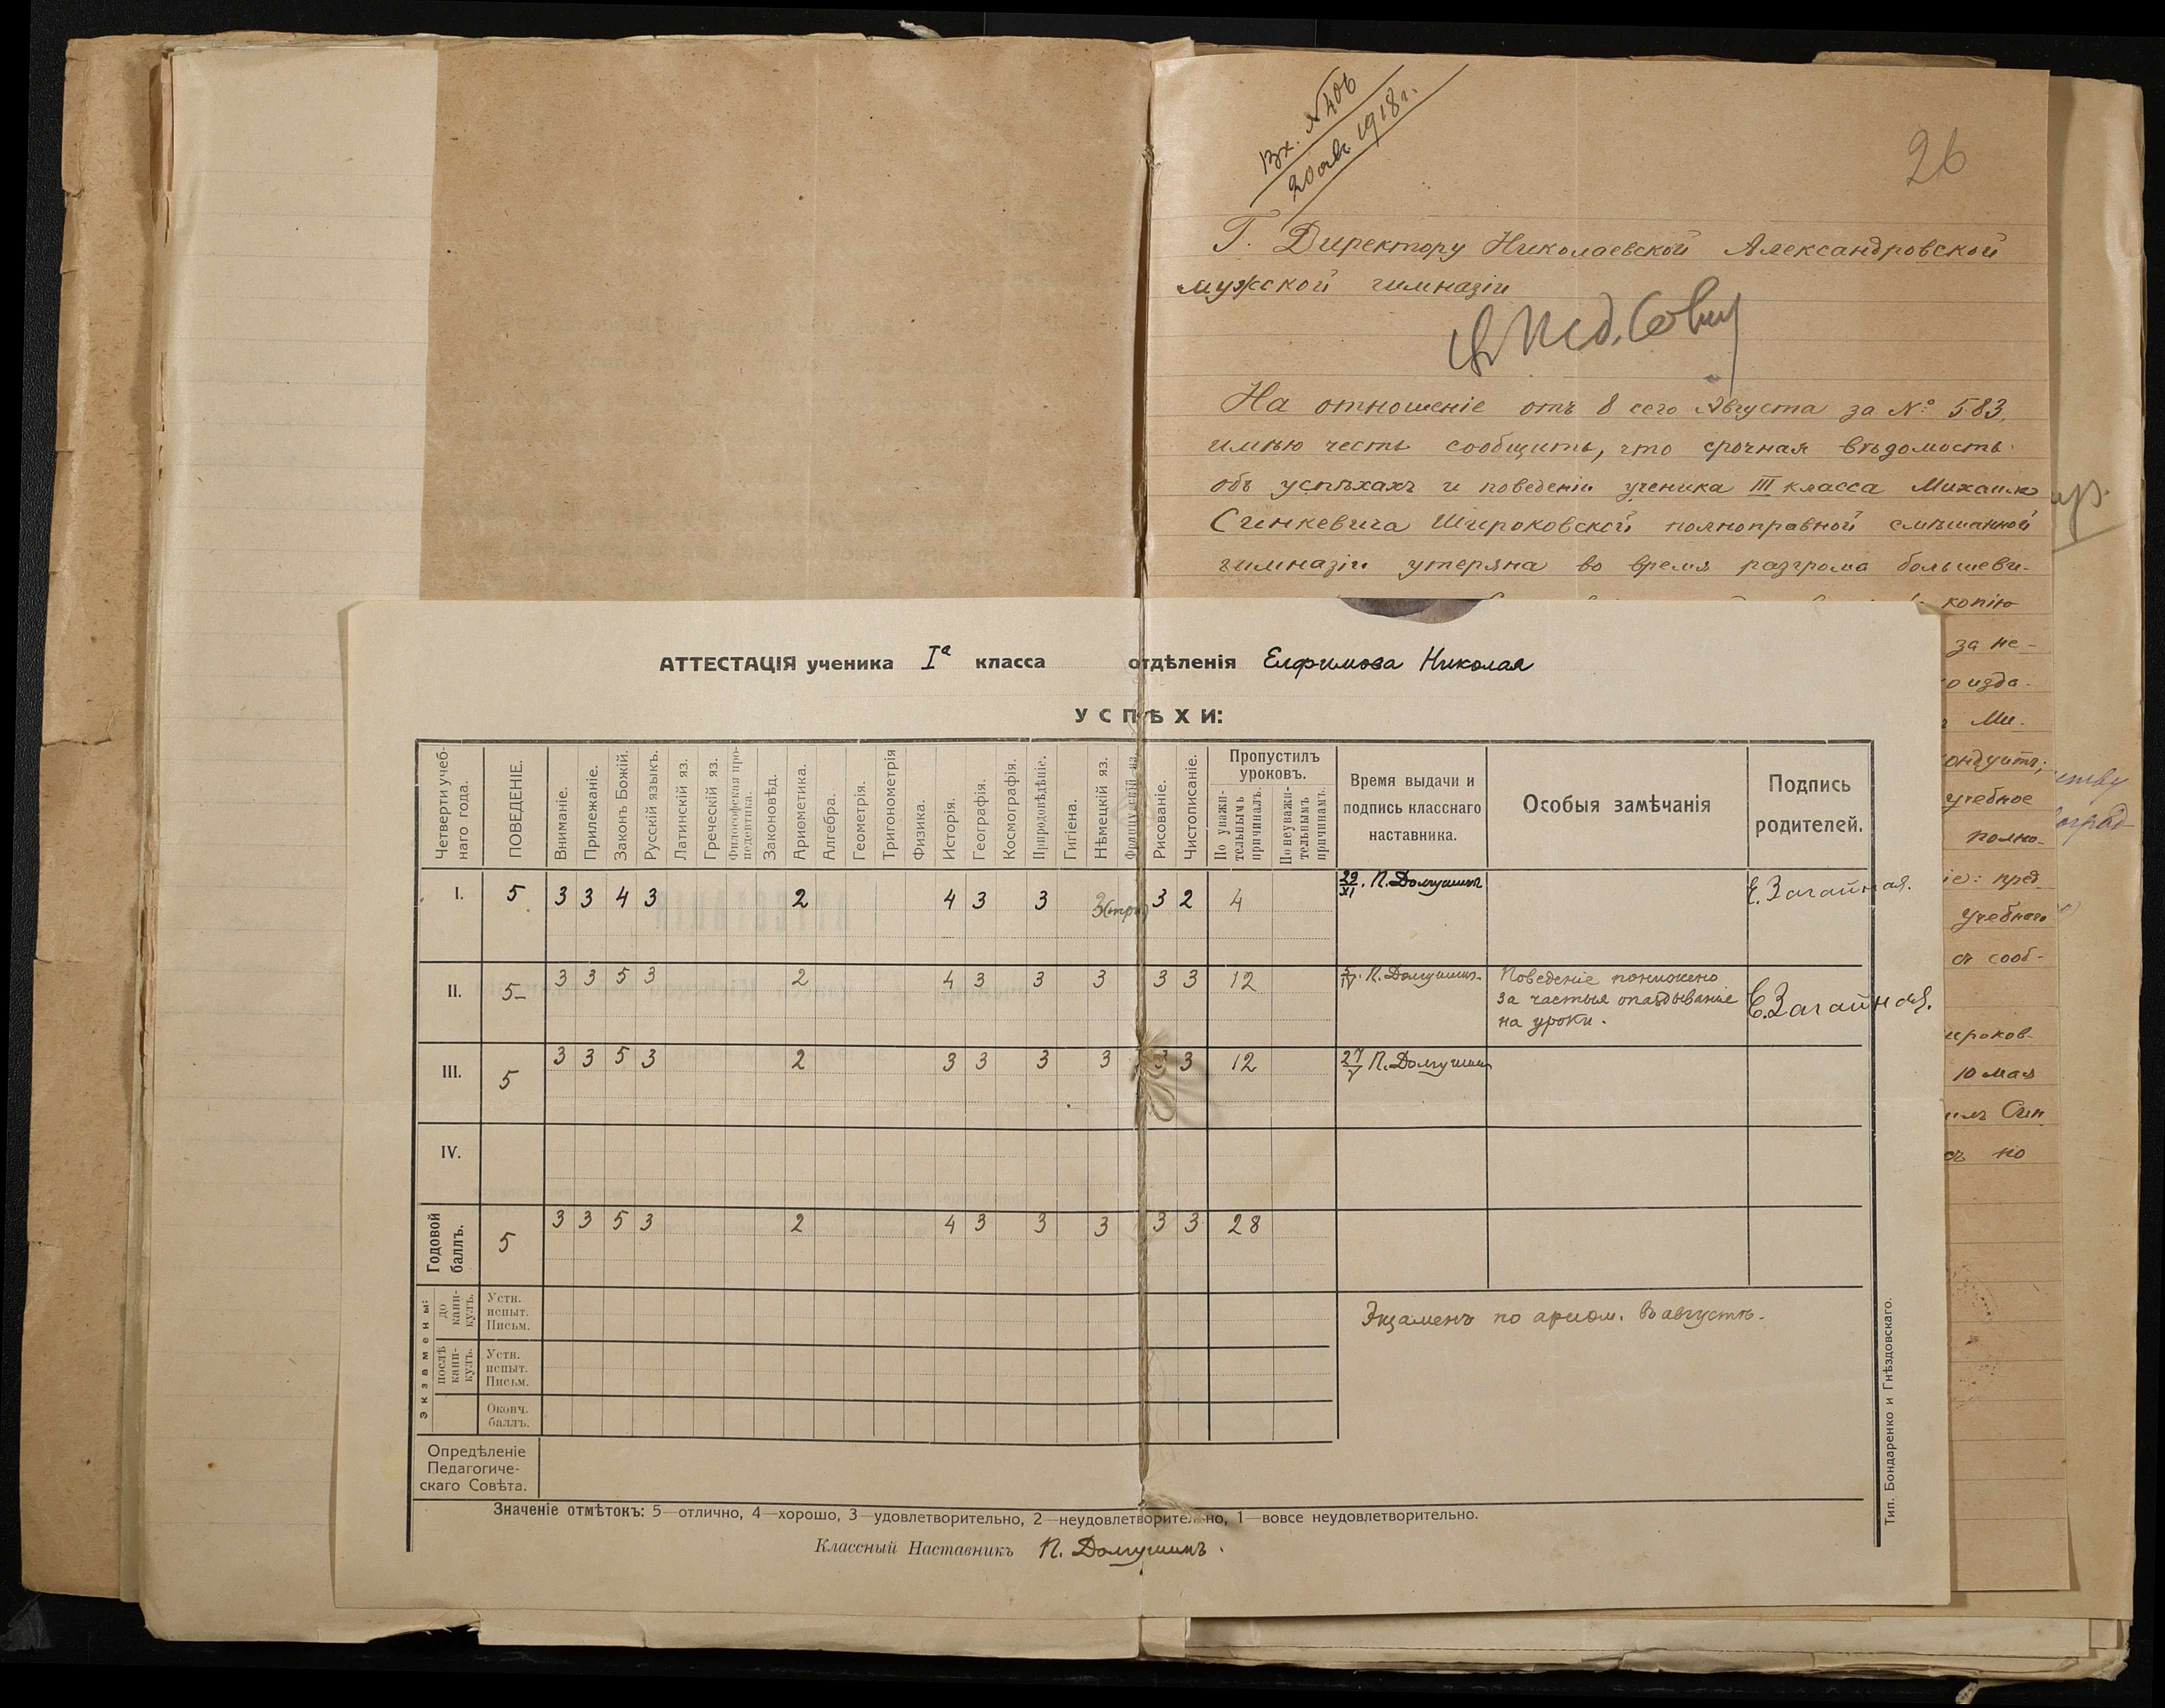 Вх. №406
20 авг. 1918 г.
26
Г. Директору Николаевской Александровской
мужской гимназіи
Пед. Совѣт
На отношеніе отъ 8 сего Августа за № 583,
имѣю честь сообщить, что срочная вѣдомость
объ успѣхахъ и поведеніи ученика III класса Михаила
Синкевича Широковской полноправной смѣшанной
гимназіи утеряна во время разгрома большеви-
копію
за не-
изда-
Ми-
кондуитъ;
учебное
полно-
пред
учебнаго
съ сооб-
ироков-
10 мая
Син
но
АТТЕСТАЦІЯ ученика Iа класса отдѣленія Елфимова Николая
УСПѢХИ:
Четверти учебнаго года.
ПОВЕДЕНІЕ.
Вниманіе.
Прилежаніе.
Законъ Божій.
Русскій языкъ.
Латинскій яз.
Греческій яз.
Философская пропедевтика.
Законовѣд.
Ариѳметика.
Алгебра.
Геометрія.
Тригонометрія
Физика.
Исторія.
Географія.
Космографія.
Природовѣдѣніе.
Гигіена.
Нѣмецкій яз.
Французскій яз.
Рисованіе.
Чистописаніе.
Пропустилъ уроковъ.
По уважи-тельнымъ причинамъ.
По неуважи-тельнымъ причинамъ.
Время выдачи и
подпись класснаго
наставника.
Особыя замѣчанія
Подпись
родителей.
I. 5 3 3 4 3 2 4 3 3 3(три) 3 2 4 29/XI. П. Долгушинъ Е. Загайная.
II. 5- 3 3 5 3 2 4 3 3 3 3 3 12 5/IV. П. Долгушинъ. Поведеніе понижено
за частыя опаздыванія Е. Загайная.
на уроки.
III. 5 3 3 5 3 2 3 3 3 3 3 3 12 27/V П. Долгушинъ
IV.
Годовой баллъ. 5 3 3 5 3 2 4 3 3 3 3 3 28
Экзамены:
до кани-кулъ.
Устн.
испыт.
Письм.
Экзаменъ по ариѳм. въ августѣ.
послѣ кани-кулъ.
Устн.
испыт.
Письм.
Оконч.
баллъ.
Опредѣленіе
Педагогиче-
скаго Совѣта.
Значеніе отмѣтокъ: 5—отлично, 4—хорошо, 3—удовлетворительно, 2—неудовлетворительно, 1—вовсе неудовлетворительно.
Классный Наставникъ П. Долгушинъ.
Тип. Бондаренко и Гнѣздовскаго.